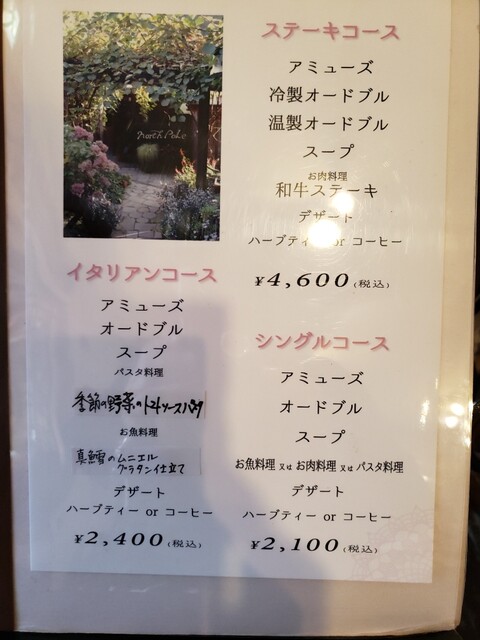 North Pole
ステーキコース
アミューズ
冷製オードブル
温製オードブル
スープ
お肉料理
和牛ステーキ
デザート
ハーブティー or コーヒー
¥4,600(税込)
イタリアンコース
アミューズ
オードブル
スープ
パスタ料理
季節の野菜のトマトソースパスタ
お魚料理
真鱈のムニエル
グラタン仕立て
デザート
ハーブティー or コーヒー
¥2,400(税込)
シングルコース
アミューズ
オードブル
スープ
お魚料理 又は お肉料理 又は パスタ料理
デザート
ハーブティー or コーヒー
¥2,100(税込)